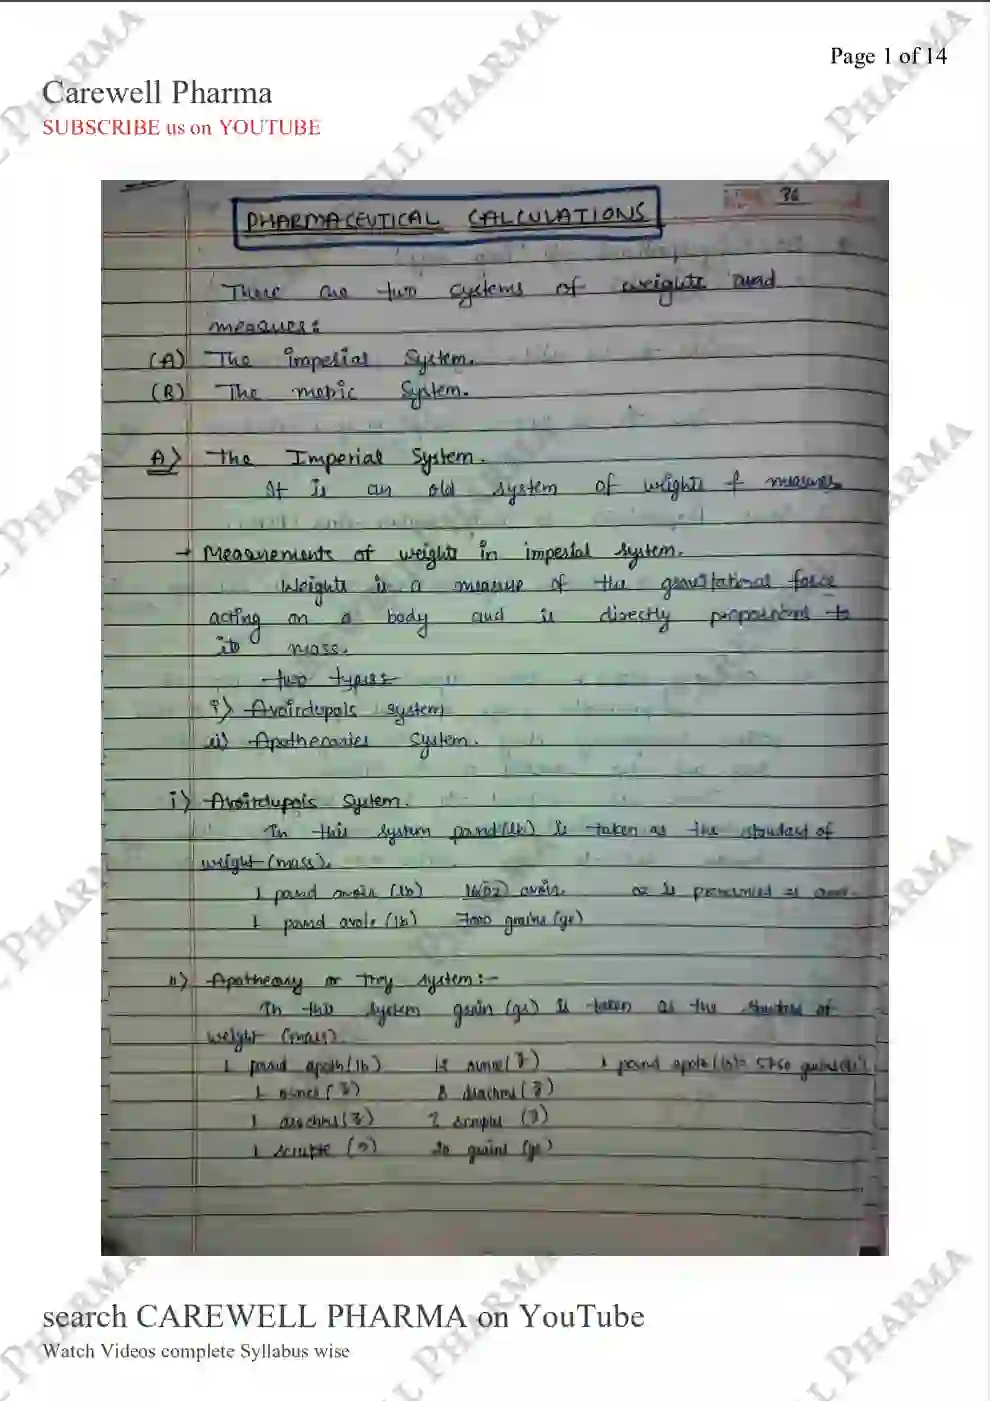 Page 1 of 14
Carewell Pharma
SUBSCRIBE us on YOUTUBE
36
PHARMACEUTICAL CALCULATIONS
There are two systems of weights and
measures:
(A) The imperial System.
(B) The metric System.
A) The Imperial System.
It is an old system of weights & measures
→ Measurements of weights in imperial system.
Weights is a measure of the gravitational force
acting on a body and is directly proportional to
its mass.
two types:
i) Avoirdupois system
ii) Apothecaries System.
i) Avoirdupois System.
In this system pound (lb) is taken as the standard of
weight (mass).
1 pound avoir (lb) 16(oz) avoir. oz is pronounced as
1 pound avoir (lb) 7000 grains (gr)
ii) Apothecary or Troy system:-
In this system grain (gr) is taken as the standard of
weight (mass).
1 pound apoth (lb) 12 ounce (℥) 1 pound apoth (lb) = 5760 grains (gr)
1 ounce (℥) 8 drachms (ʒ)
1 drachms (ʒ) 3 scruples (℈)
1 scruple (℈) 20 grains (gr)
search CAREWELL PHARMA on YouTube
Watch Videos complete Syllabus wise
CAREWELL PHARMA